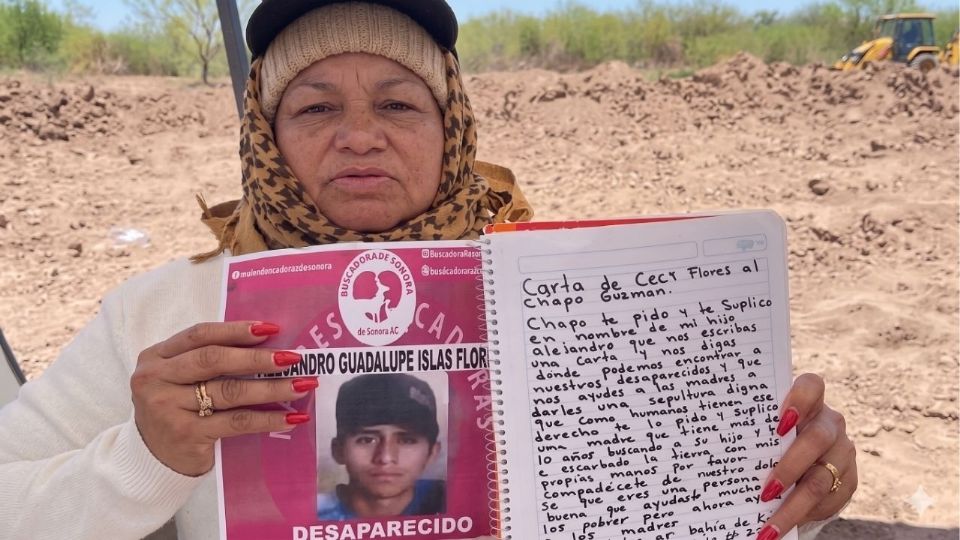 mulendoncadorazdesonora
BuscadoraRason
BUSCADORA DE SONORA
de Sonora AC
ALEJANDRO GUADALUPE ISLAS FLOR
DESAPARECIDO
Carta de Ceci Flores al
Chapo Guzman.
Chapo te pido y te Suplico
en nombre de mi hijo
alejandro que nos escribas
una Carta y nos digas
donde podemos encontrar a
nuestros desaparecidos y que
nos ayudes a las madres a
darles una sepultura digna
que como humanos tienen ese
derecho te lo pido y suplico
una madre que tiene más de
10 años buscando a su hijo y
escarbado la tierra con mis
propias manos por favor
compadécete de nuestro dolo
se que eres una persona
buena que ayudaste mucho
los pobrer pero ahora ay
los madres
ar bahía de K